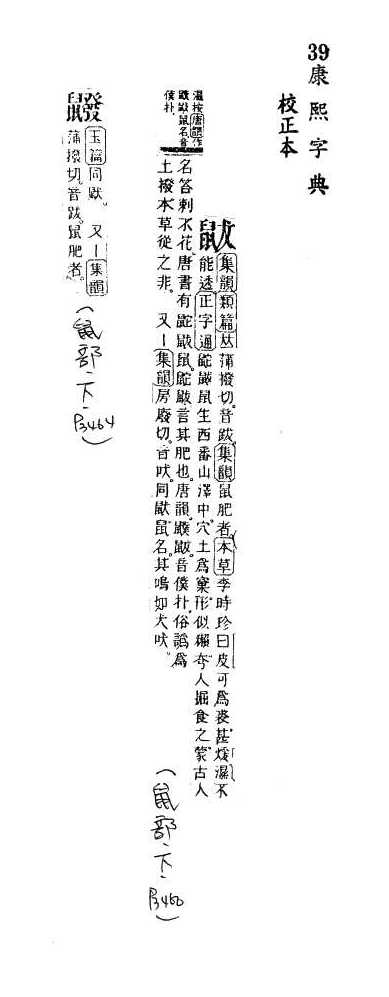 39 康熙字典
校正本
鼥
集韻類篇𠀤蒲撥切音跋集韻鼠肥者本草李時珍曰皮可為裘甚煖濕不
能透正字通鼧鼥鼠生西番山澤中穴土為窠形似獺夷人掘食之蒙古人
名答剌不花唐書有鼧鼥鼠鼧鼥言其肥也唐韻鼵鼥音僕朴俗譌為
土撥本草從之非 又丨集韻房廢切音吠同鼣鼠名其鳴如犬吠
謹按唐韻作
鼠名音
僕朴
(鼠部、下、P3460)
玉篇同鼥 又丨集韻
蒲撥切音跋鼠肥者
(鼠部、下、P3464)